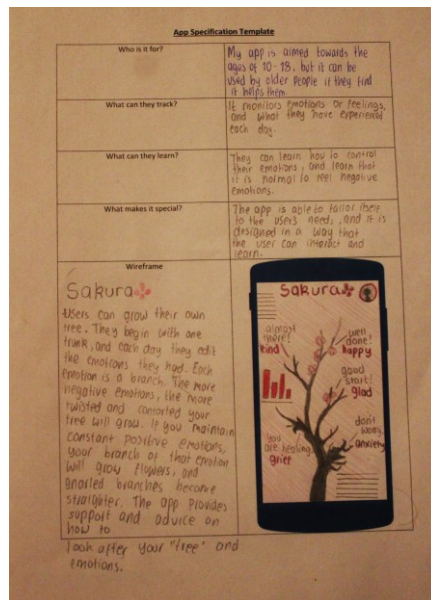 App Specification Template
Who is it for?
My app is aimed towards the
ages of 10-18, but it can be
used by older people if they find
it helps them.
What can they track?
It monitors emotions or feelings,
and what they have experienced
each day.
What can they learn?
They can learn how to control
their emotions, and learn that
it is normal to feel negative
emotions.
What makes it special?
The app is able to tailor itself
to the users need, and it is
designed in a way that
the user can interact and
learn.
Wireframe
Sakura
Users can grow their own
tree. They begin with one
trunk, and each day they edit
the emotions they had. Each
emotion is a branch. The more
negative emotions, the more
twisted and contorted your
tree will grow. If you maintain
constant positive emotions,
your branch of that emotion
will grow flowers, and
gnarled branches become
straighter. The app provides
support and advice on
how to
look after your "tree" and
emotions.
Sakura
almost
there!
kind
well
done!
happy
good
start!
glad
dont
worry
anxiety
you
are healing
grief